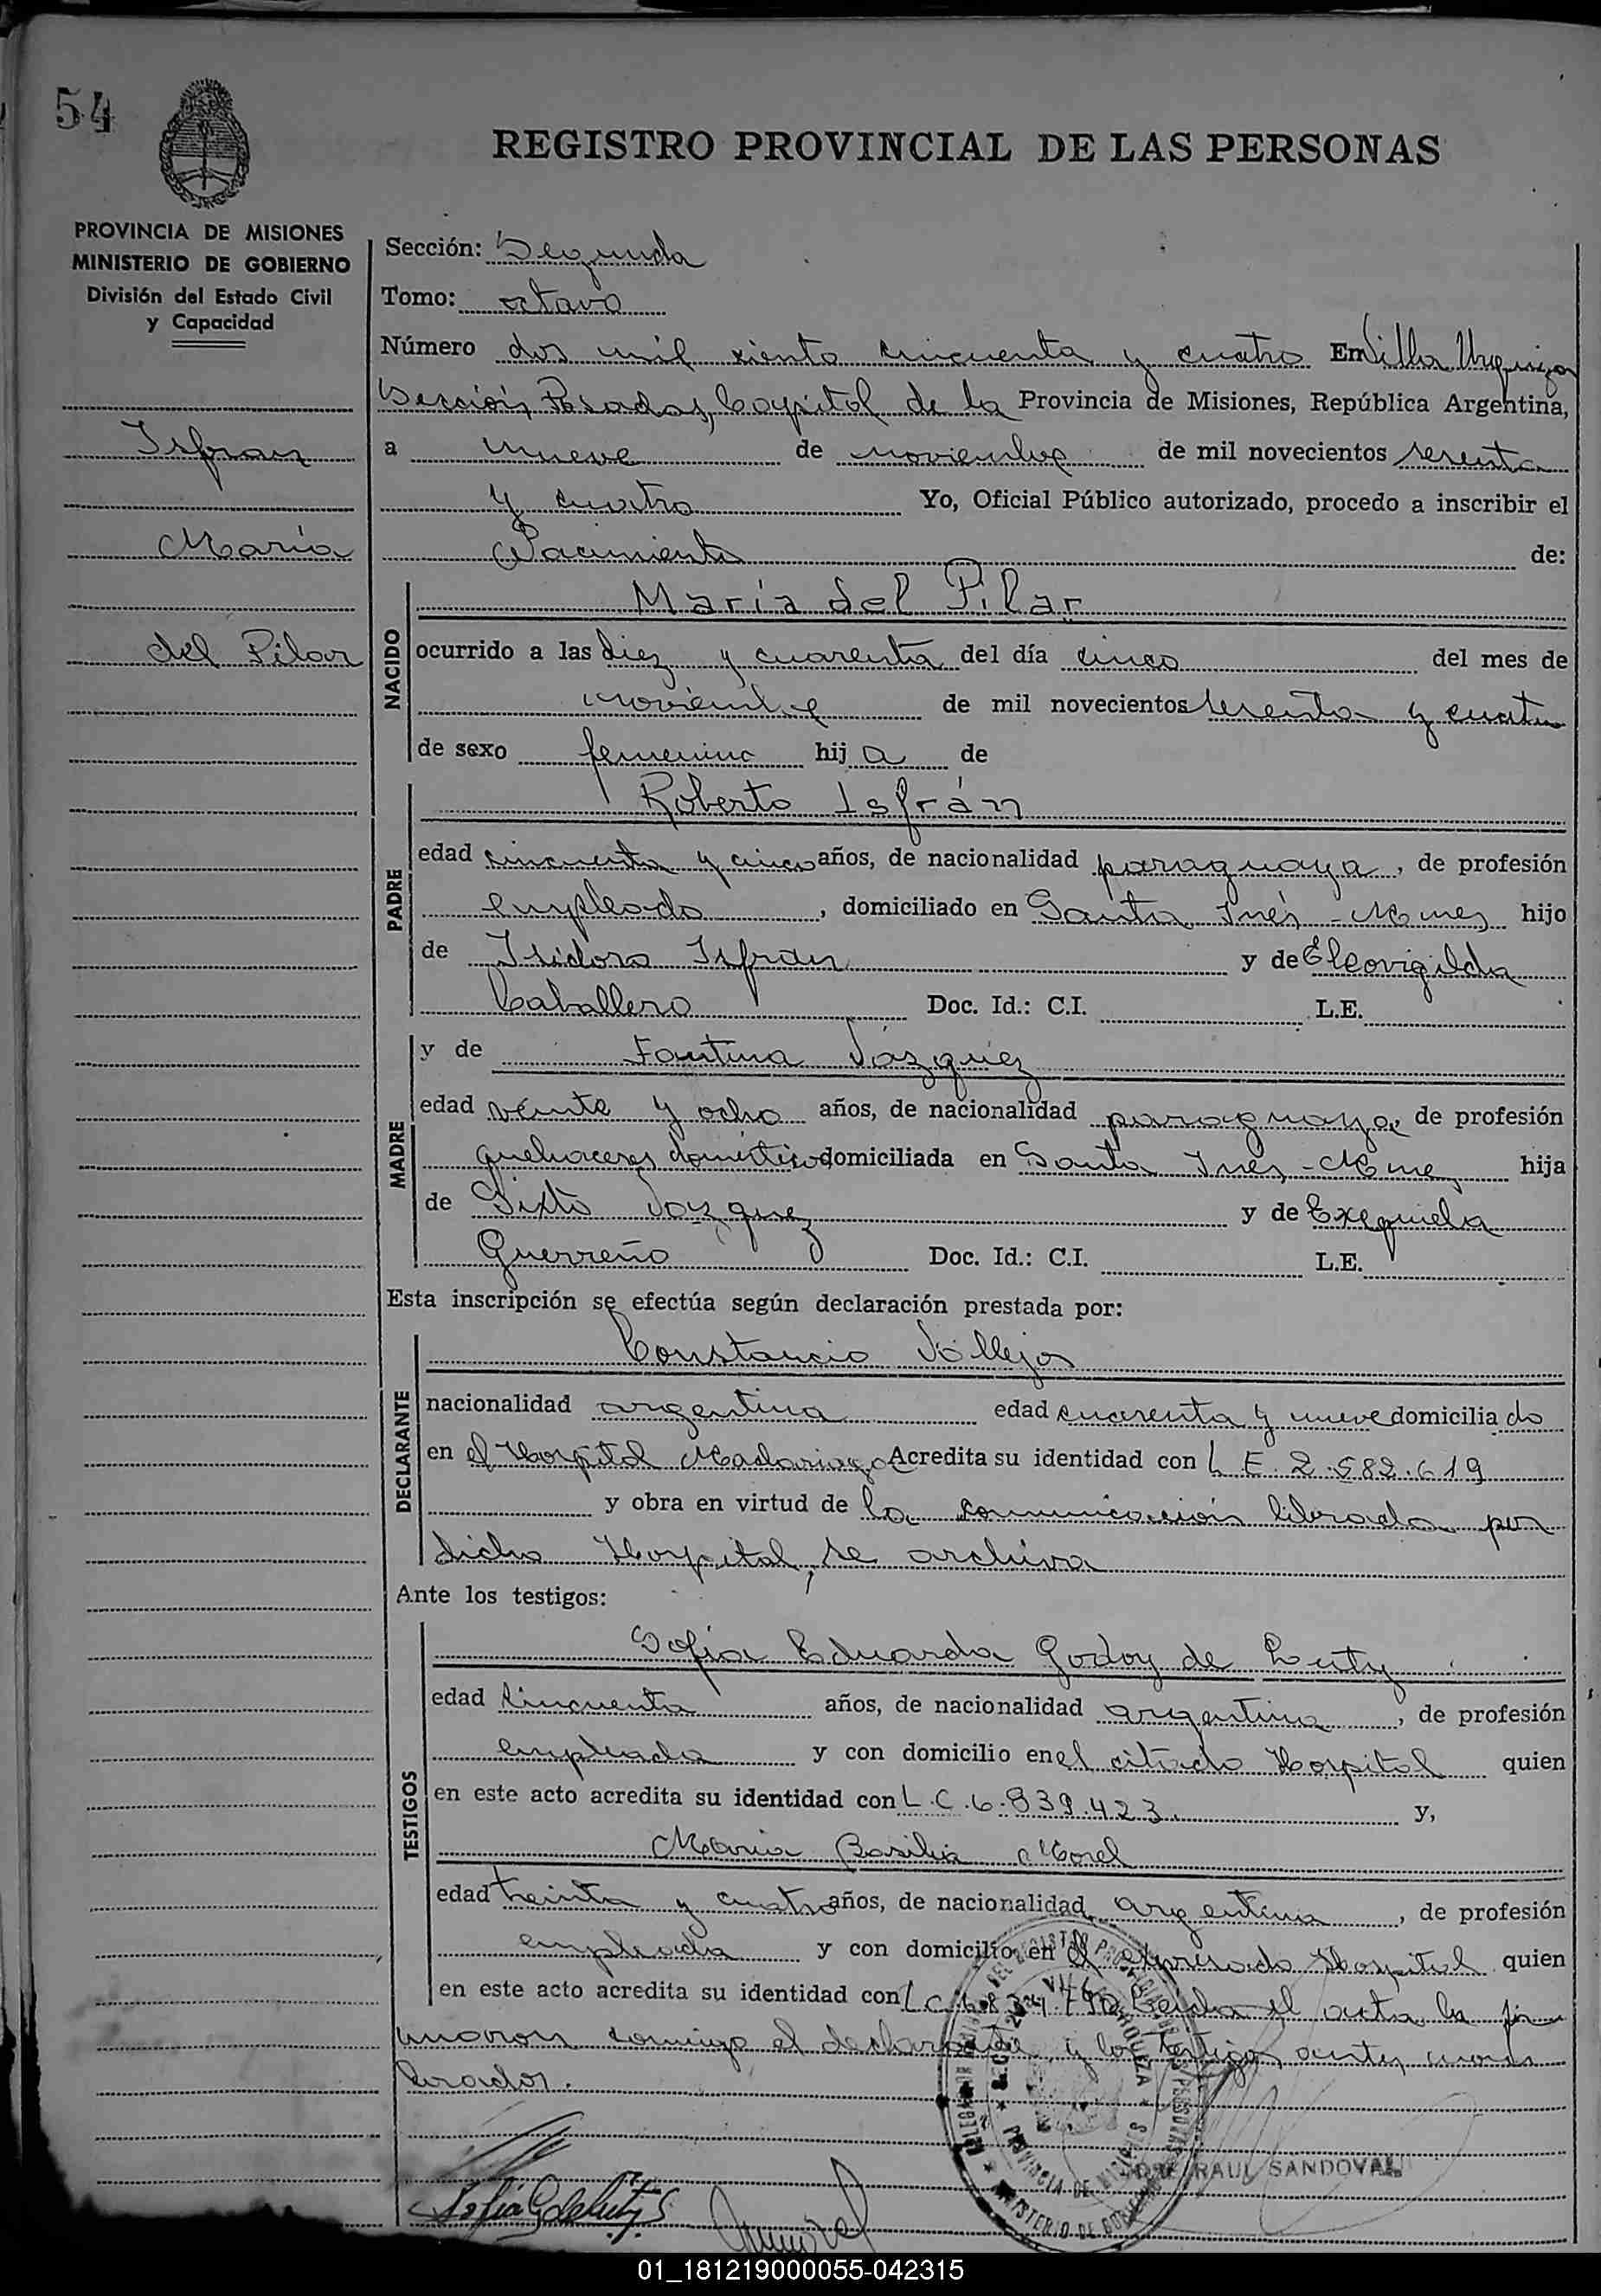 54
REGISTRO PROVINCIAL DE LAS PERSONAS
PROVINCIA DE MISIONES
MINISTERIO DE GOBIERNO
División del Estado Civil
y Capacidad
Isfran
María
del Pilar
Sección: Segunda
Tomo: octavo
Número dos mil ciento cincuenta y cuatro En Villa Urquiza
Sección Posadas, Capital de la Provincia de Misiones, República Argentina,
a nueve de noviembre de mil novecientos sesenta
y cuatro Yo, Oficial Público autorizado, procedo a inscribir el
Nacimiento de:
NACIDO
María del Pilar
ocurrido a las diez y cuarenta del día cinco del mes de
noviembre de mil novecientos sesenta y cuatro
de sexo femenino hij a de
PADRE
Roberto Isfrán
edad cincuenta y cinco años, de nacionalidad paraguaya, de profesión
empleado, domiciliado en Santa Inés - Mnes hijo
de Isidoro Isfran y de Eleovigilda
Caballero Doc. Id.: C.I. L.E.
MADRE
y de Fautina Vázquez
edad veinte y ocho años, de nacionalidad paraguaya, de profesión
quehaceres domésticos domiciliada en Santa Inés - Mnes hija
de Sixto Vazquez y de Exequiela
Guerreño Doc. Id.: C.I. L.E.
Esta inscripción se efectúa según declaración prestada por:
DECLARANTE
Constancio Vallejos
nacionalidad argentina edad cuarenta y nueve domiciliado
en el Hospital Madariaga Acredita su identidad con L E 2.582.619
y obra en virtud de la comunicación librada por
dicho Hospital, se archiva
Ante los testigos:
TESTIGOS
Sofia Eduarda Godoy de
edad cincuenta años, de nacionalidad argentina, de profesión
empleada y con domicilio en el citado Hospital quien
en este acto acredita su identidad con L.C.6.839.423. y,
María Basilia Morel
edad treinta y cuatro años, de nacionalidad argentina, de profesión
empleada y con domicilio en el expresado Hospital quien
en este acto acredita su identidad con L C Leída el acta la fir
maron conmigo el declarante y los testigos antes mencio
nados.
RAUL SANDOVAL
PROVINCIA DE MISIONES
MINISTERIO DE GOBIERNO
01_181219000055-042315